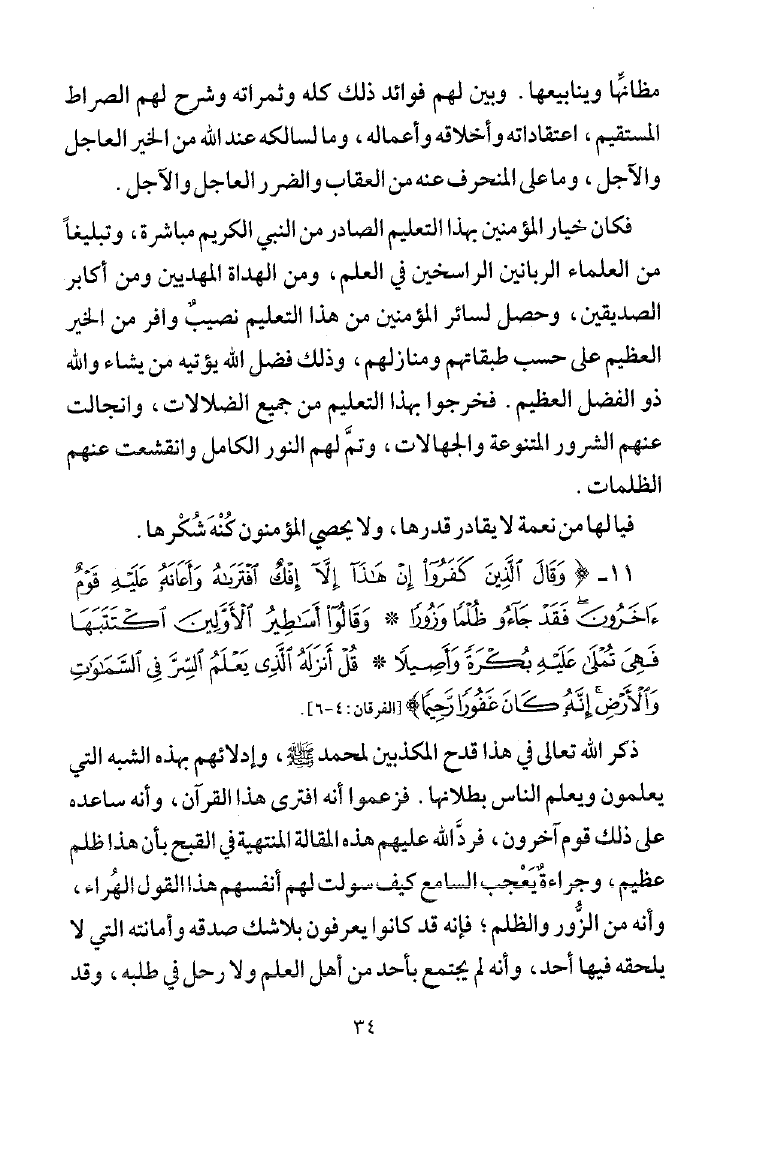 مظانهِّا وينابيعها. وبين لهم فوائد ذلك كله وثمراته وشرح لهم الصراط
المستقيم، اعتقاداته وأخلاقه وأعماله، وما لسالكه عند الله من الخير العاجل
والآجل، وما على المنحرف عنه من العقاب والضرر العاجل والآجل.
فكان خيار المؤمنين بهذا التعليم الصادر من النبي الكريم مباشرة، وتبليغاً
من العلماء الربانين الراسخين في العلم، ومن الهداة المهديين ومن أكابر
الصديقين، وحصل لسائر المؤمنين من هذا التعليم نصيبٌ وافر من الخير
العظيم على حسب طبقاتهم ومنازلهم، وذلك فضل الله يؤتيه من يشاء والله
ذو الفضل العظيم. فخرجوا بهذا التعليم من جميع الضلالات، وانجالت
عنهم الشرور المتنوعة والجهالات، وتمَّ لهم النور الكامل وانقشعت عنهم
الظلمات.
فيا لها من نعمة لا يقادر قدرها، ولا يحصي المؤمنون كُنْهَ شُكْرها.
١١- ﴿ وَقَالَ ٱلَّذِينَ كَفَرُوٓا۟ إِنْ هَٰذَآ إِلَّآ إِفْكٌ ٱفْتَرَىٰهُ وَأَعَانَهُۥ عَلَيْهِ قَوْمٌ
ءَاخَرُونَ ۖ فَقَدْ جَآءُو ظُلْمًا وَزُورًا * وَقَالُوٓا۟ أَسَٰطِيرُ ٱلْأَوَّلِينَ ٱكْتَتَبَهَا
فَهِىَ تُمْلَىٰ عَلَيْهِ بُكْرَةً وَأَصِيلًا * قُلْ أَنزَلَهُ ٱلَّذِى يَعْلَمُ ٱلسِّرَّ فِى ٱلسَّمَٰوَٰتِ
وَٱلْأَرْضِ ۚ إِنَّهُۥ كَانَ غَفُورًا رَّحِيمًا﴾ [الفرقان: ٤-٦].
ذكر الله تعالى في هذا قدح المكذبين لمحمد ﷺ، وإدلائهم بهذه الشبه التي
يعلمون ويعلم الناس بطلانها. فزعموا أنه افترى هذا القرآن، وأنه ساعده
على ذلك قوم آخرون، فردَّ الله عليهم هذه المقالة المنتهية في القبح بأن هذا ظلم
عظيم، وجراءةٌ يَعْجب السامع كيف سولت لهم أنفسهم هذا القول الهُراء،
وأنه من الزُّور والظلم؛ فإنه قد كانوا يعرفون بلا شك صدقه وأمانته التي لا
يلحقه فيها أحد، وأنه لم يجتمع بأحد من أهل العلم ولا رحل في طلبه، وقد
٣٤